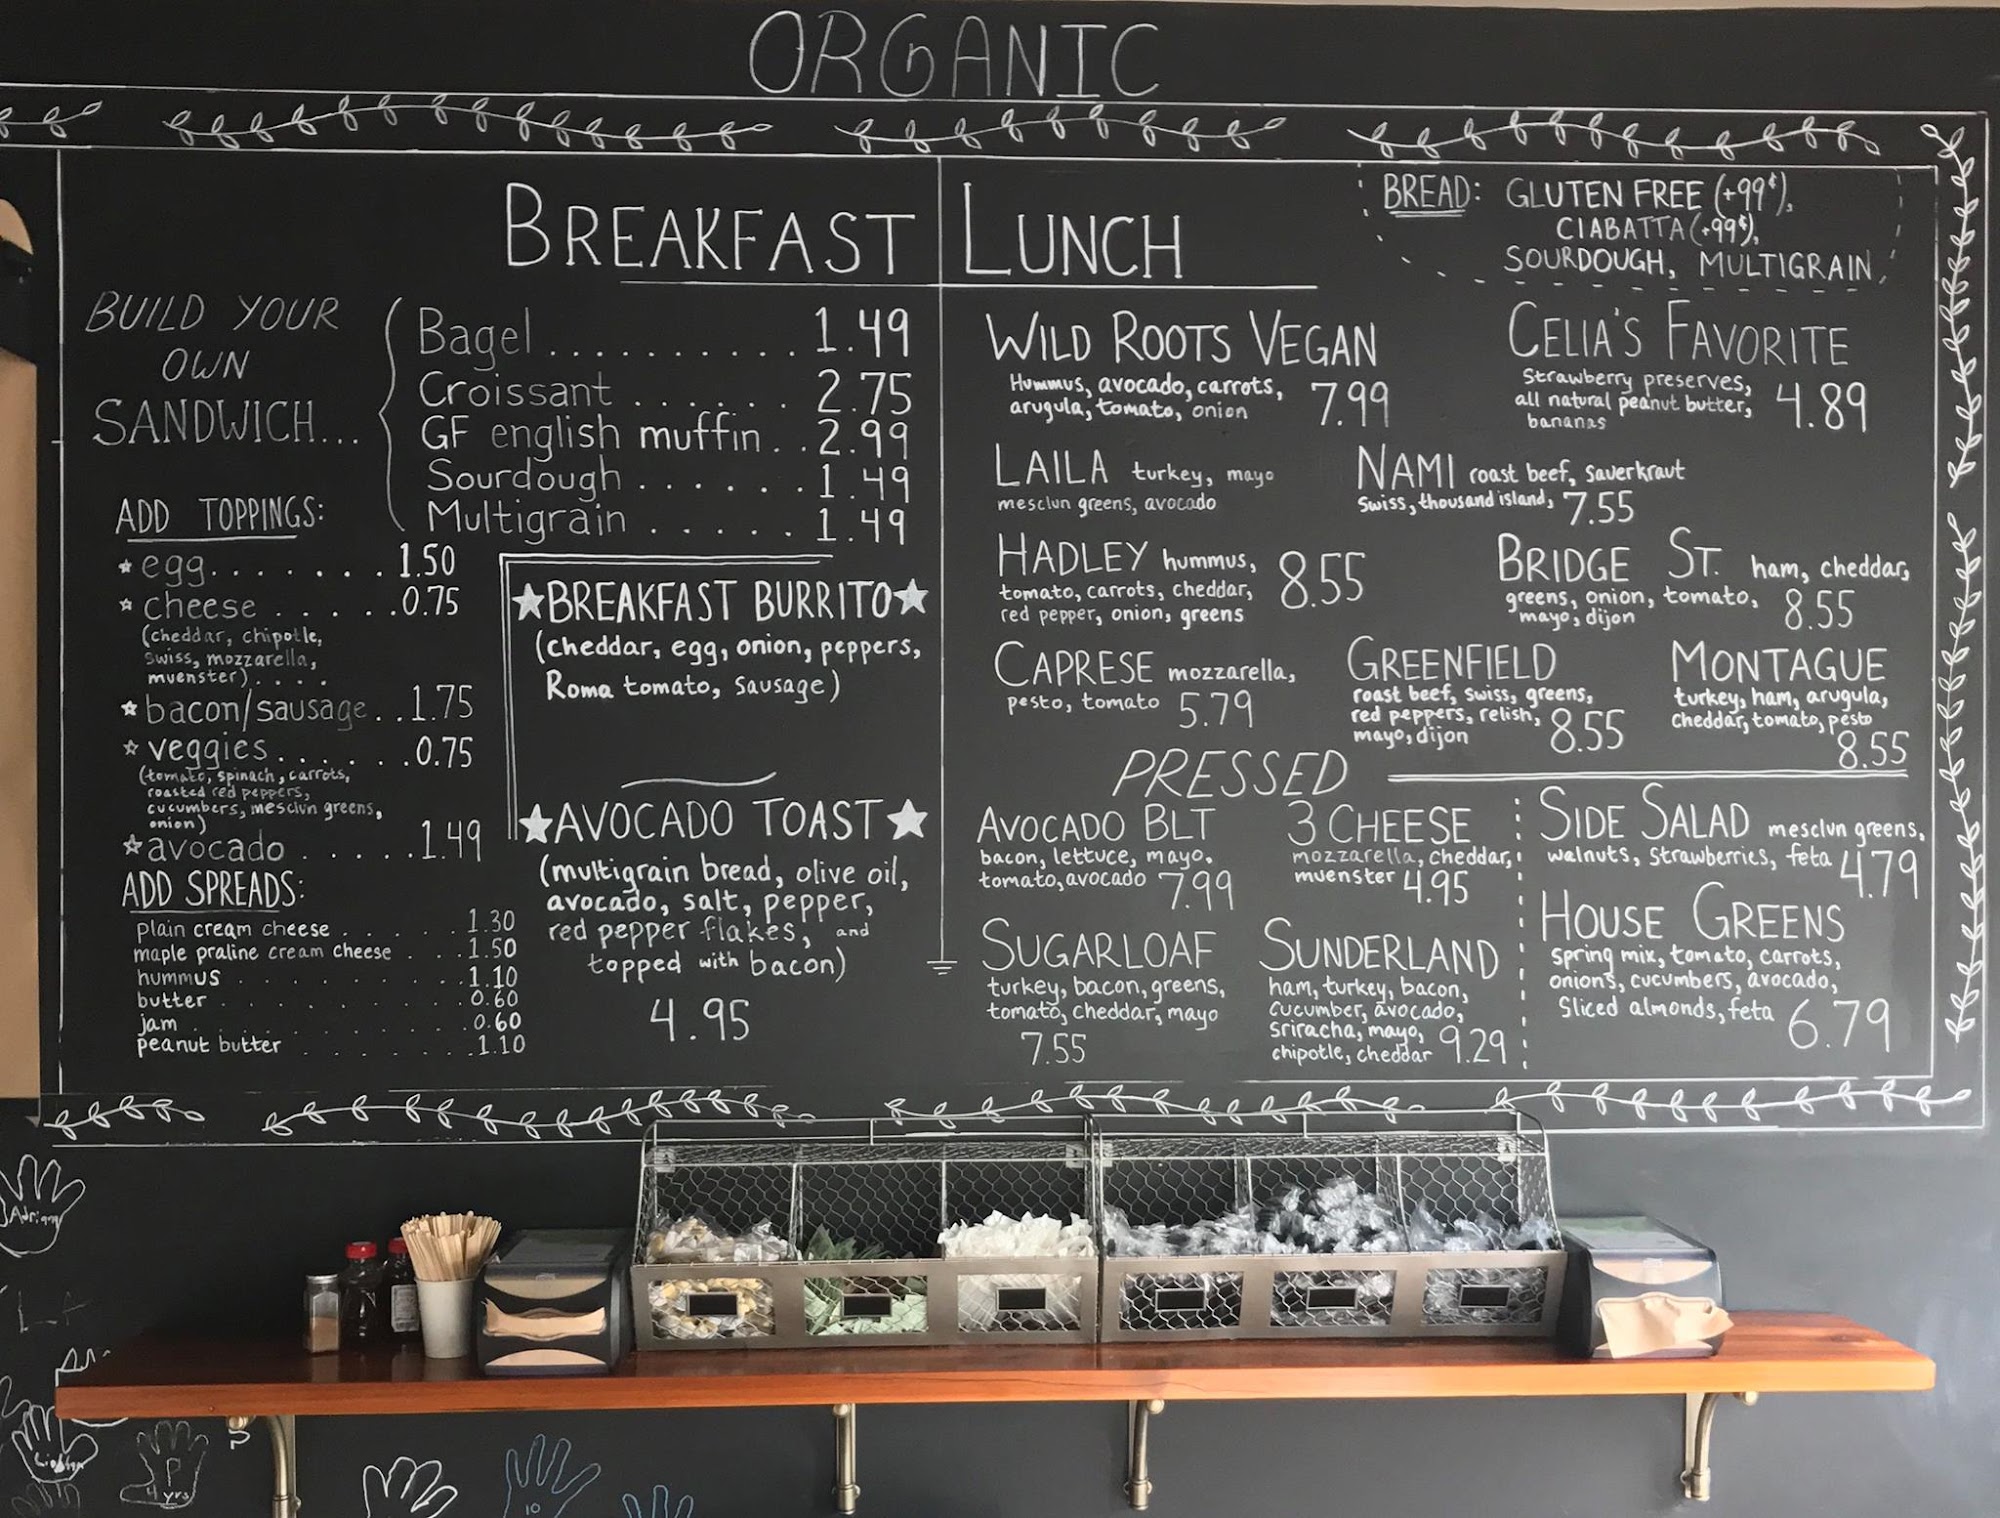 ORGANIC
BREAKFAST
BUILD YOUR
OWN
SANDWICH...
Bagel.......... 1.49
Croissant ...... 2.75
GF english muffin.. 2.99
Sourdough ...... 1.49
Multigrain ..... 1.49
ADD TOPPINGS:
☆ egg....... 1.50
☆ cheese ..... 0.75
(cheddar, chipotle,
swiss, mozzarella,
muenster)....
☆ bacon/sausage.. 1.75
☆ veggies...... 0.75
(tomato, spinach, carrots,
roasted red peppers,
cucumbers, mesclun greens,
onion)
☆ avocado ..... 1.49
ADD SPREADS:
plain cream cheese ...... 1.30
maple praline cream cheese ... 1.50
hummus .......... 1.10
butter .......... 0.60
jam ........... 0.60
peanut butter ....... 1.10
★BREAKFAST BURRITO★
(cheddar, egg, onion, peppers,
Roma tomato, sausage)
★AVOCADO TOAST★
(multigrain bread, olive oil,
avocado, salt, pepper,
red pepper flakes, and
topped with bacon)
4.95
LUNCH
BREAD: GLUTEN FREE (+99¢),
CIABATTA (+99¢),
SOURDOUGH, MULTIGRAIN
WILD ROOTS VEGAN
Hummus, avocado, carrots,
arugula, tomato, onion 7.99
CELIA'S FAVORITE
Strawberry preserves,
all natural peanut butter,
bananas 4.89
LAILA turkey, mayo
mesclun greens, avocado
NAMI roast beef, sauerkraut
Swiss, thousand island, 7.55
HADLEY hummus,
tomato, carrots, cheddar,
red pepper, onion, greens 8.55
BRIDGE ST. ham, cheddar,
greens, onion, tomato,
mayo, dijon 8.55
CAPRESE mozzarella,
pesto, tomato 5.79
GREENFIELD
roast beef, swiss, greens,
red peppers, relish,
mayo, dijon 8.55
MONTAGUE
turkey, ham, arugula,
cheddar, tomato, pesto
8.55
PRESSED
AVOCADO BLT
bacon, lettuce, mayo,
tomato, avocado 7.99
3 CHEESE
mozzarella, cheddar,
muenster 4.95
SUGARLOAF
turkey, bacon, greens,
tomato, cheddar, mayo
7.55
SUNDERLAND
ham, turkey, bacon,
cucumber, avocado,
sriracha, mayo,
chipotle, cheddar 9.29
SIDE SALAD mesclun greens,
walnuts, strawberries, feta 4.79
HOUSE GREENS
spring mix, tomato, carrots,
onions, cucumbers, avocado,
sliced almonds, feta 6.79
P
P
4 yrs
10